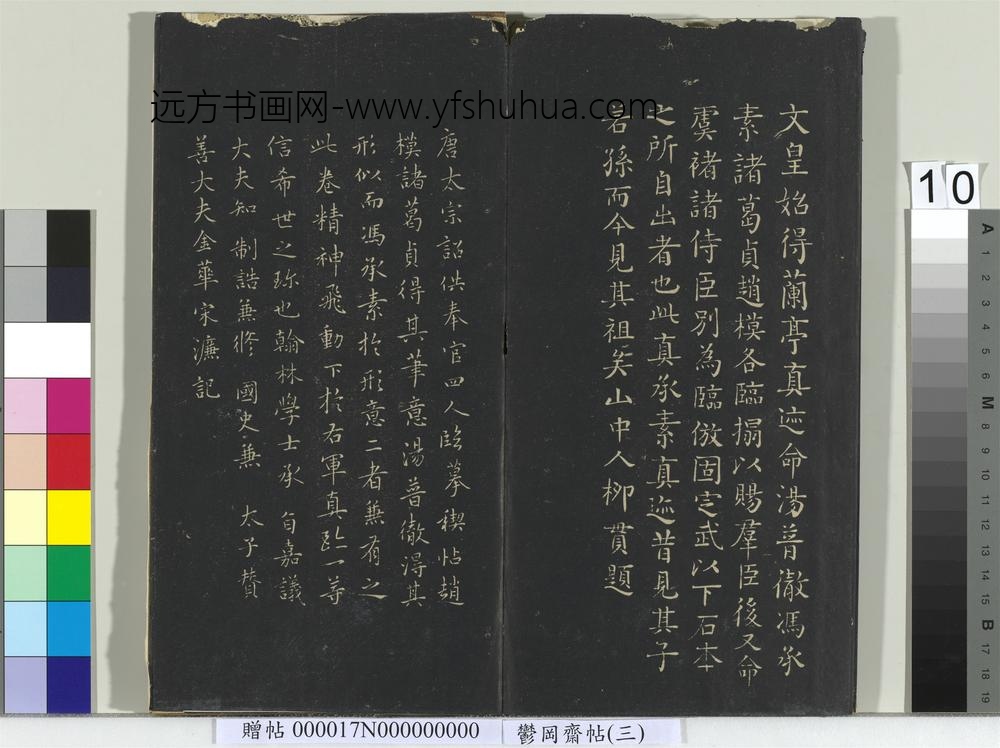 远方书画网-www.yfshuhua.com
文皇始得蘭亭真迹命湯普徹馮承
素諸葛貞趙模各臨搨以賜羣臣後又命
虞褚諸侍臣別為臨倣固定武以下石本
之所自出者也此真承素真迹昔見其子
若孫而今見其祖矣山中人柳貫題
唐太宗詔供奉官四人臨摹禊帖趙
模諸葛貞得其筆意湯普徹得其
形似而馮承素於形意二者兼有之
此卷精神飛動下於右軍真跡一等
信希世之珎也翰林學士承旨嘉議
大夫知 制誥兼修 國史兼 太子贊
善大夫金華宋濂記
10
A
1
2
3
4
5
6
M
8
9
10
11
12
13
14
15
B
17
18
19
贈帖 000017N000000000
鬱岡齋帖(三)